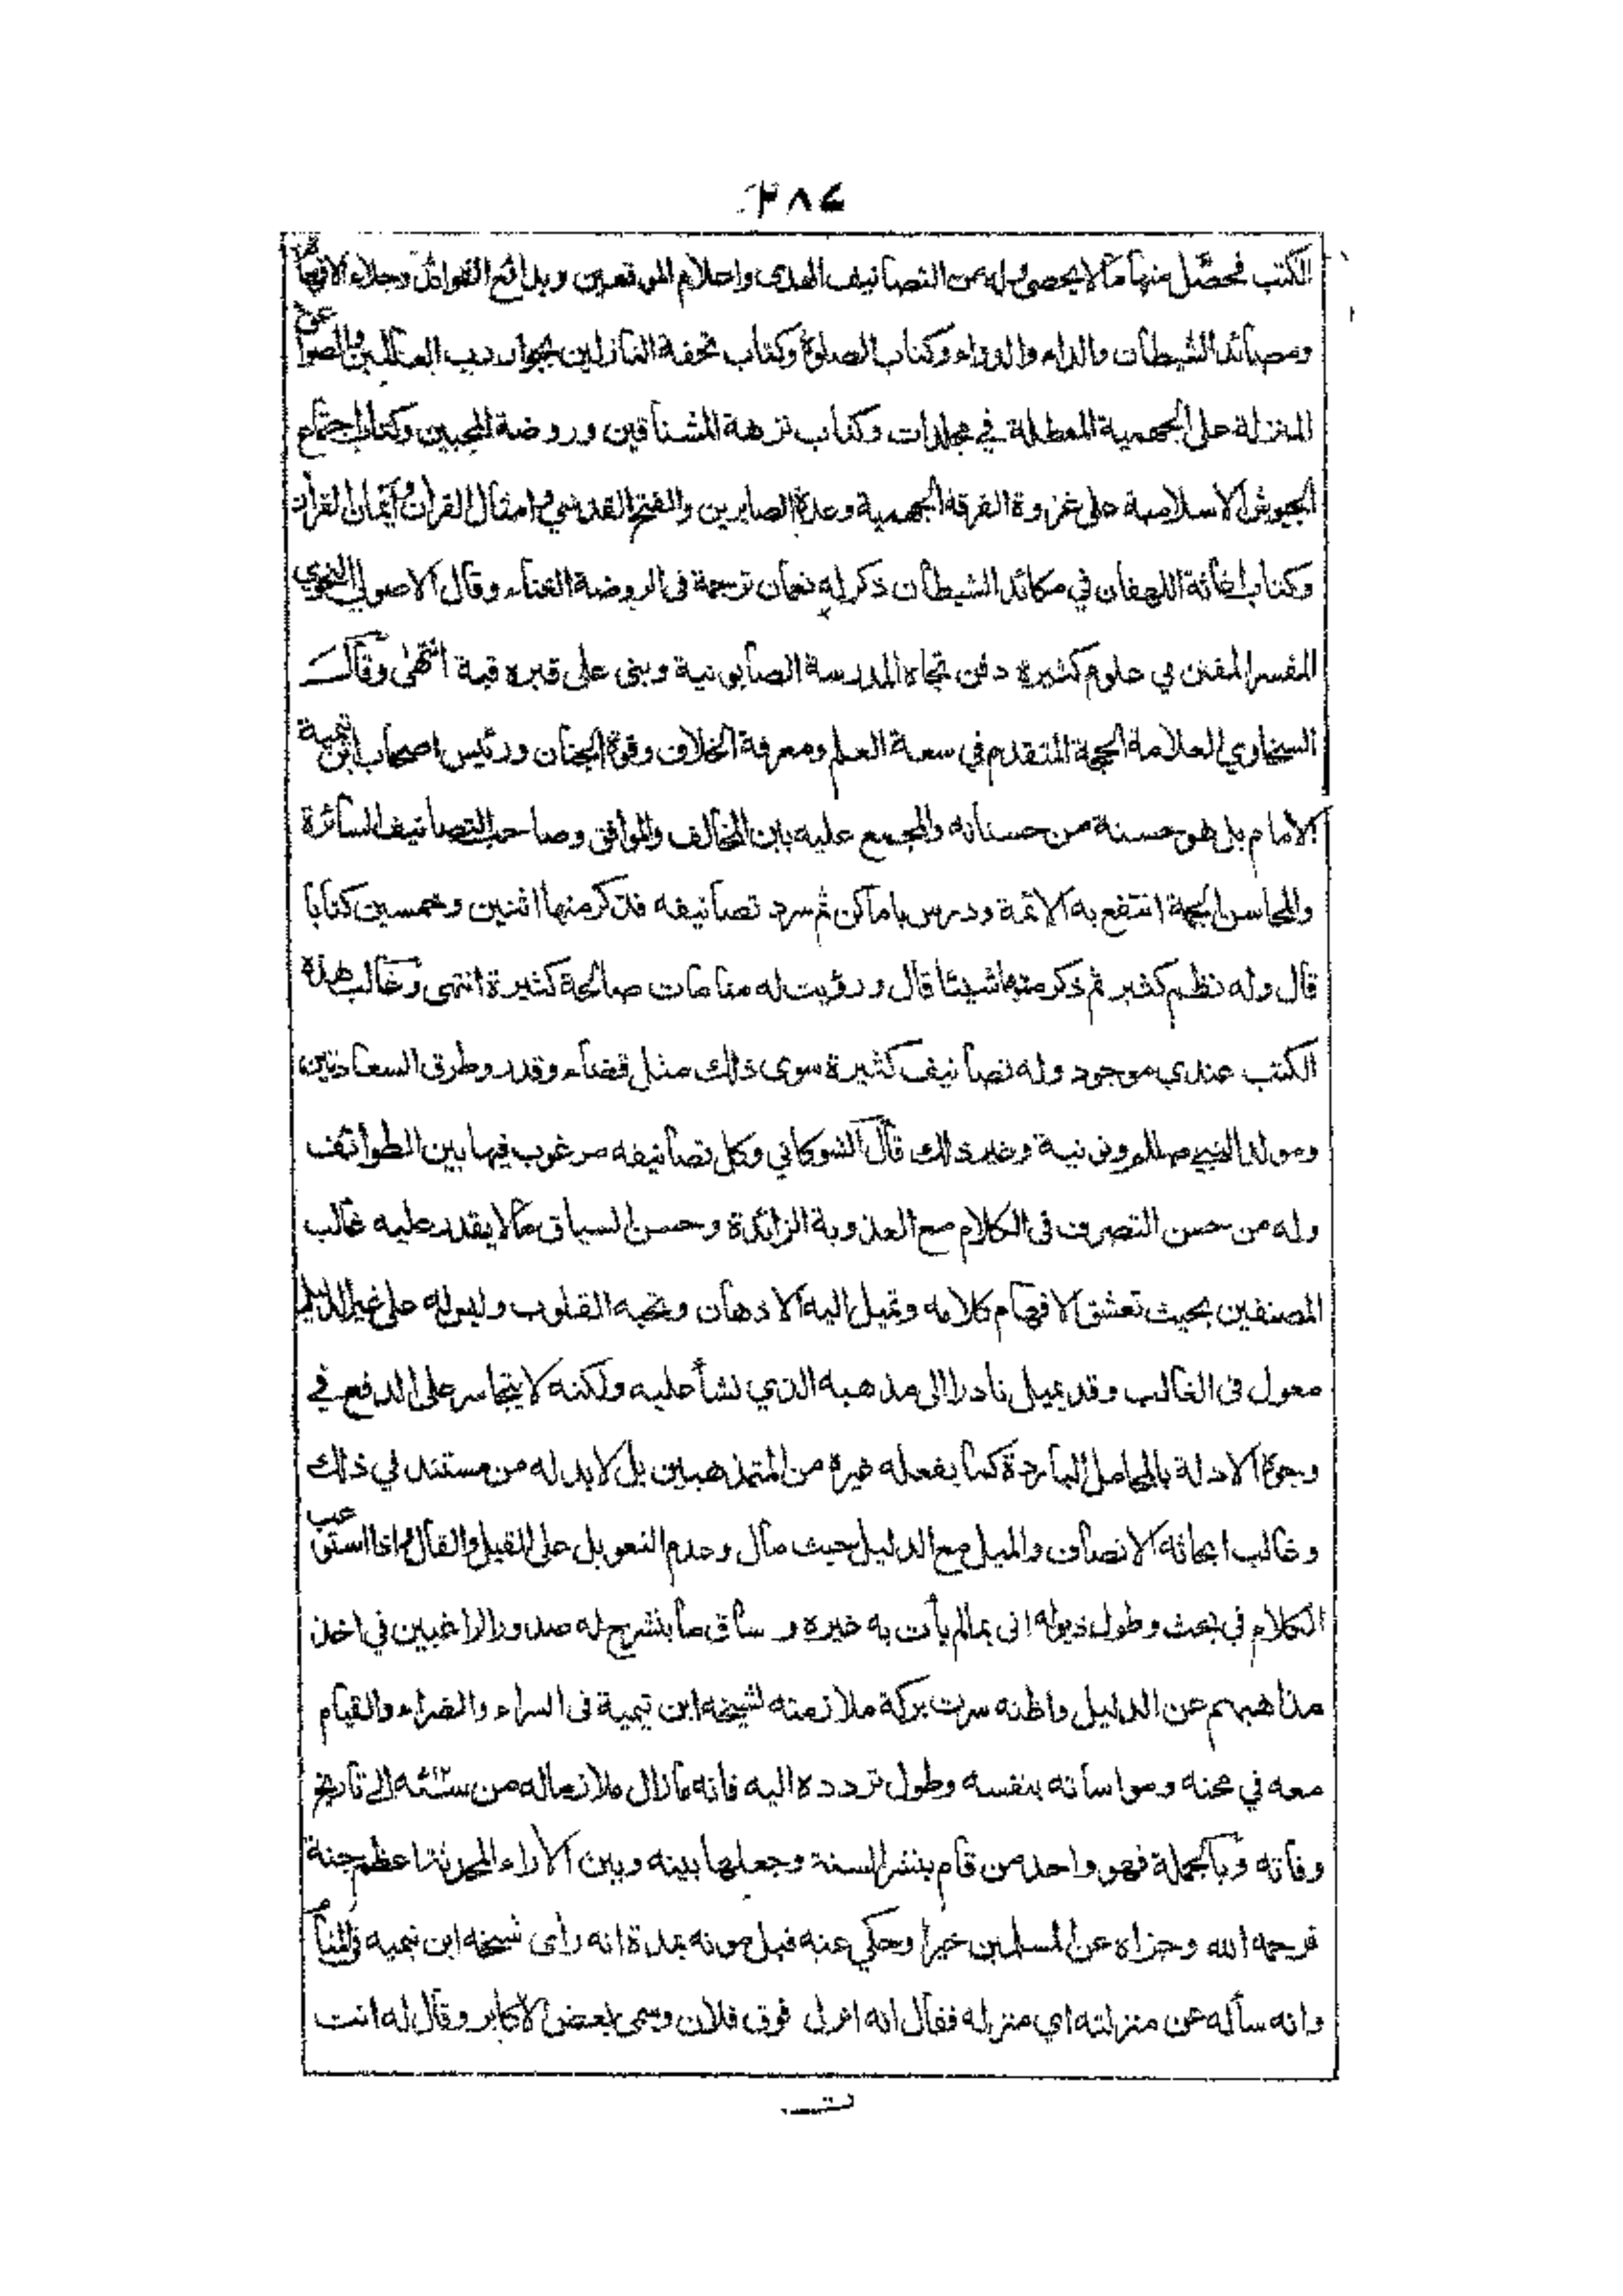 ٢٨٤
الكتب فحصّل منها ما لا يحصى وله من التصانيف الهدى واعلام الموقعين وبدائع الفوائد وجلاء الافهام
ومصائد الشيطان والداء والدواء وكتاب الصلوة وكتاب تحفة النازلين بجوار رب العالمين والصواعق
المنزلة على الجهمية المعطلة في مجلدات وكتاب نزهة المشتاقين وروضة المحبين وكتاب اجتماع
الجيوش الاسلامية على غزوة الفرقة الجهمية وعدة الصابرين والفتح القدسي وامثال القرآن وايمان القرآن
وكتاب اغاثة اللهفان في مكائد الشيطان ذكر له نعمان ترجمة فى الروضة الغناء وقال الاصولي النحوي
المفسر المفنن في علوم كثيرة دفن تجاه المدرسة الصابونية وبنى على قبره قبة انتهى وقال
السخاوي العلامة الحجة المتقدم في سعة العلم ومعرفة الخلاف وقوة الجنان ورئيس اصحاب ابن تيمية
الامام بل هو حسنة من حسناته والمجمع عليه بين المخالف والموافق وصاحب التصانيف السائرة
والمحاسن الجمة انتفع به الائمة ودرس باماكن ثم سرد تصانيفه فذكر منها اثنين وخمسين كتابا
قال وله نظم كثير ثم ذكر منها شيئا قال ورؤيت له منامات صالحة كثيرة انتهى وغالب هذه
الكتب عندي موجود وله تصانيف كثيرة سوى ذلك مثل قضاء وقدر وطرق السعادتين
ومولد النبي صللم ونونية وغير ذلك قال الشوكاني وكل تصانيفه مرغوب فيها بين الطوائف
وله من حسن التصرف فى الكلام مع العذوبة الزائدة وحسن السياق ما لا يقدر عليه غالب
المصنفين بحيث تعشق الافهام كلامه وتميل اليه الاذهان وتحبه القلوب وليس له على غير الدليل
معول فى الغالب وقد يميل نادرا الى مذهبه الذي نشأ عليه ولكنه لا يتجاسر على الدفع في
وجوه الادلة بالمحامل الباردة كما يفعله غيره من المتمذهبين بل لا بد له من مستند في ذلك
وغالب ابحاثه الانصاف والميل مع الدليل حيث مال وعدم التعويل على القيل والقال واذا استوعب
الكلام في بحث وطول ذيوله اتى بما لم يأت به غيره وساق ما ينشرح له صدور الراغبين في اخذ
مذاهبهم عن الدليل واظنه سرت بركة ملازمته لشيخه ابن تيمية فى السراء والضراء والقيام
معه في محنه ومواساته بنفسه وطول تردده اليه فانه ما زال ملازما له من سنة الى تاريخ
وفاته وبالجملة فهو واحد من قام بنشر السنة وجعلها بينه وبين الاراء المحدثة اعظم جنة
فرحمه الله وجزاه عن المسلمين خيرا وحكي عنه قبل موته بمدة انه رأى شيخه ابن تيمية في المنام
وانه سأله عن منزلته اي منزله فقال انه انزل فوق فلان وسمى بعض الاكابر وقال له انت